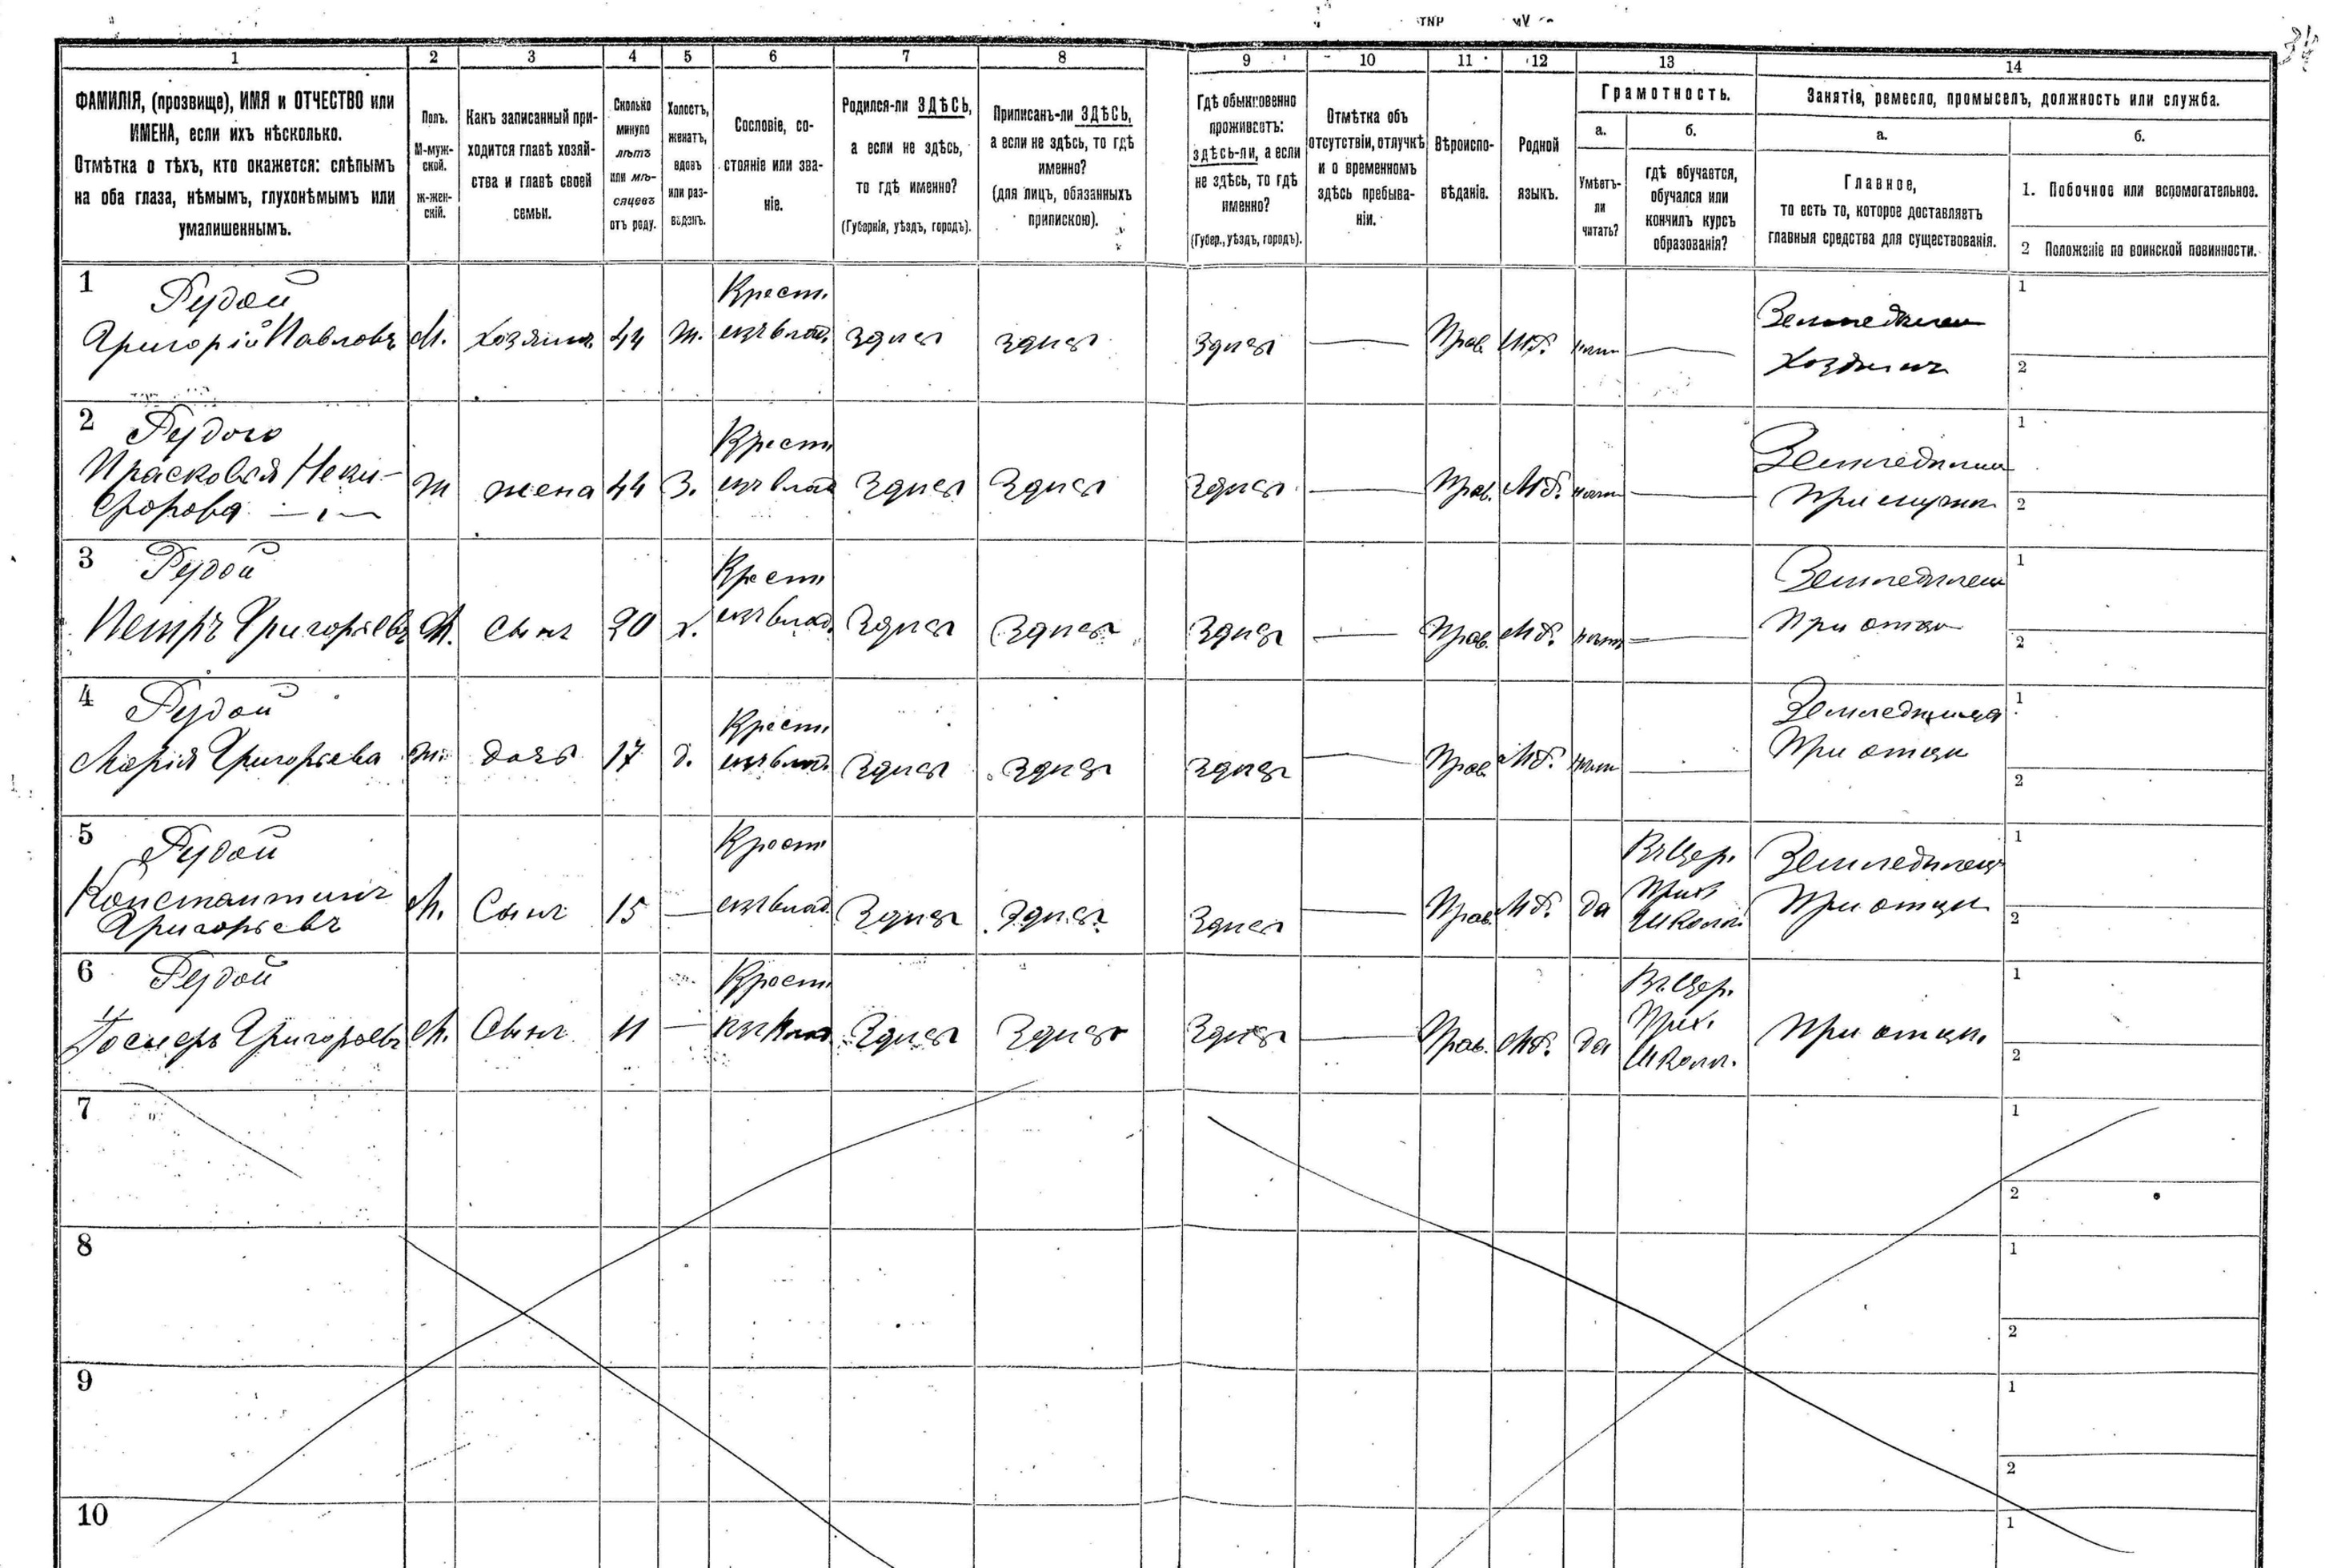 1 2 3 4 5 6 7 8 9 10 11 12 13 14
ФАМИЛІЯ, (прозвище), ИМЯ и ОТЧЕСТВО или
ИМЕНА, если ихъ нѣсколько.
Отмѣтка о тѣхъ, кто окажется: слѣпымъ
на оба глаза, нѣмымъ, глухонѣмымъ или
умалишеннымъ.
Полъ.
М-муж-
ской.
ж-жен-
скій.
Какъ записанный при-
ходится главѣ хозяй-
ства и главѣ своей
семьи.
Сколько
минуло
лѣтъ
или мѣ-
сяцевъ
отъ роду.
Холостъ,
женатъ,
вдовъ
или раз-
веденъ.
Сословіе, со-
стояніе или зва-
ніе.
Родился-ли ЗДѢСЬ,
а если не здѣсь,
то гдѣ именно?
(Губернія, уѣздъ, городъ).
Приписанъ-ли ЗДѢСЬ,
а если не здѣсь, то гдѣ
именно?
(для лицъ, обязанныхъ
припискою).
Гдѣ обыкновенно
проживаетъ:
здѣсь-ли, а если
не здѣсь, то гдѣ
именно?
(Губер., уѣздъ, городъ).
Отмѣтка объ
отсутствіи, отлучкѣ
и о временномъ
здѣсь пребыва-
ніи.
Вѣроиспо-
вѣданіе.
Родной
языкъ.
Грамотность.
а.
Умѣетъ-
ли
читать?
б.
гдѣ обучается,
обучался или
кончилъ курсъ
образованія?
Занятіе, ремесло, промыселъ, должность или служба.
а.
Главное,
то есть то, которое доставляетъ
главныя средства для существованія.
б.
1. Побочное или вспомогательное.
2 Положеніе по воинской повинности.
1 Рудой Крест. 1
Григорій Павловъ М. хозяинъ 44 ж. изъ влад. здѣсь здѣсь здѣсь — Прав. Мб. нѣтъ — Земледѣлец
Хозяинъ 2
2 Рудого Крест. 1
Прасковья Ники-
форова ж жена 44 З. изъ влад. здѣсь здѣсь здѣсь — Прав. Мб. нѣтъ — Земледѣлец
При мужѣ 2
3 Рудой Крест. 1
Петръ Григорьевъ М. сынъ 20 х. изъ влад. здѣсь здѣсь здѣсь — Прав. Мб. нѣтъ — Земледѣлец
При отцѣ 2
4 Рудой Крест. 1
Марія Григорьева ж. дочь 17 д. изъ влад. здѣсь здѣсь здѣсь — Прав. Мб. нѣтъ —
При отцѣ 2
5 Рудой Крест. 1
Константинъ
Григорьевъ М. Сынъ 15 — изъ влад. здѣсь здѣсь здѣсь — Прав. Мб. да
Въ Цер.
Прих.
Школѣ
Земледѣлецъ
При отцѣ 2
6 Рудой Крест. 1
Григорьевъ М. Сынъ 11 — изъ влад. здѣсь здѣсь здѣсь — Прав. Мб. да
Въ Цер.
Прих.
Школѣ.
При отцѣ. 2
7 1
2
8 1
2
9 1
2
10 1